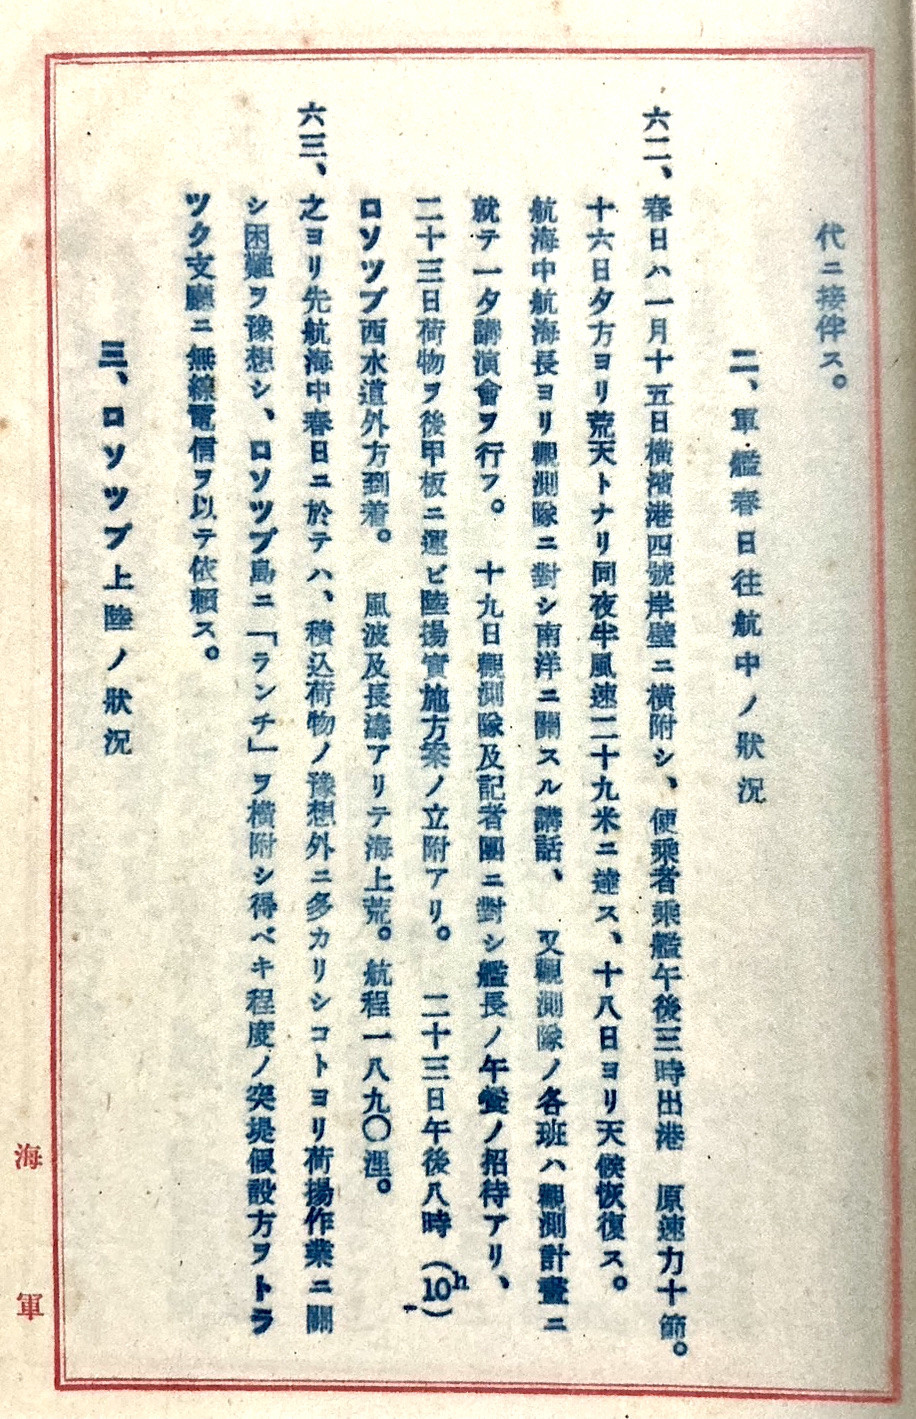 代ニ接伴ス。
二、軍艦春日往航中ノ狀況
六二、春日ハ一月十五日橫濱港四號岸壁ニ橫附シ、便乘者乘艦午後三時出港　原速力十節。
十六日夕方ヨリ荒天トナリ同夜半風速二十九米ニ達ス、十八日ヨリ天候恢復ス。
航海中航海長ヨリ觀測隊ニ對シ南洋ニ關スル講話、　又觀測隊ノ各班ハ觀測計畫ニ
就テ一夕講演會ヲ行フ。　十九日觀測隊及記者團ニ對シ艦長ノ午餐ノ招待アリ、
二十三日荷物ヲ後甲板ニ運ビ陸揚實施方案ノ立附アリ。　二十三日午後八時（-10h）
ロソツプ西水道外方到着。　風波及長濤アリテ海上荒。航程一八九〇浬。
六三、之ヨリ先航海中春日ニ於テハ、積込荷物ノ豫想外ニ多カリシコトヨリ荷揚作業ニ關
シ困難ヲ豫想シ、ロソツプ島ニ「ランチ」ヲ橫附シ得ベキ程度ノ突堤假設方ヲトラ
ツク支廳ニ無線電信ヲ以テ依賴ス。
三、ロソツプ上陸ノ狀況
海軍